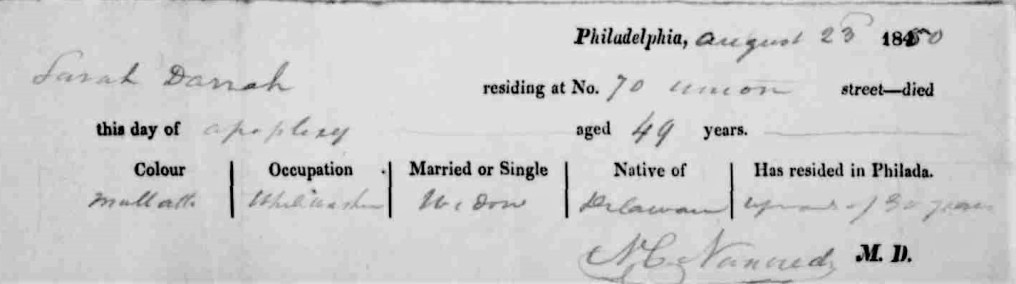 Philadelphia, august 23 1850
Sarah Darrah residing at No. 70 union street—died
this day of apoplexy aged 49 years.
Colour Occupation Married or Single Native of Has resided in Philada.
Mullatto Whitewasher Widow Delaware of 30 years
M. D.